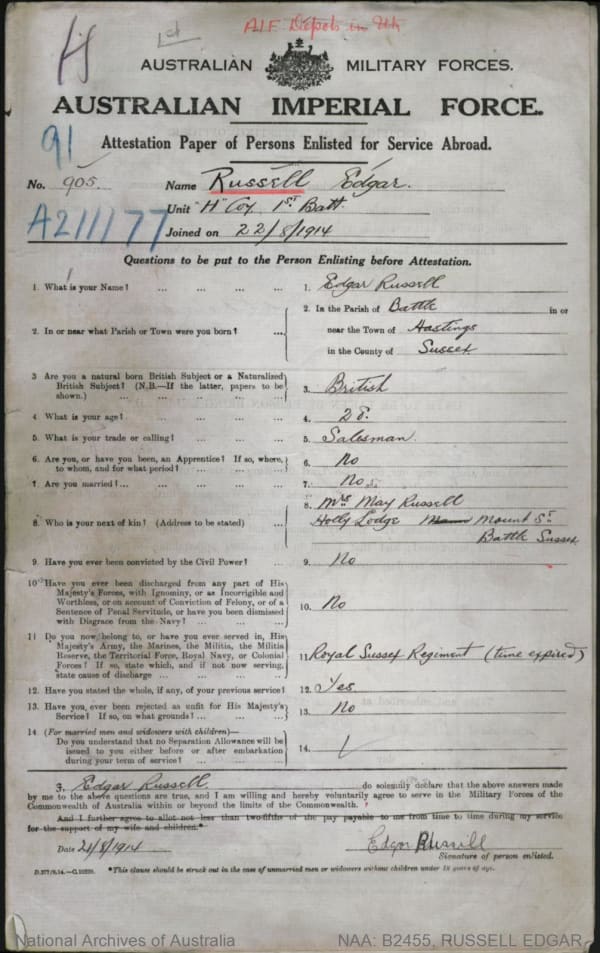 H 1st AIF Depots in Uk
AUSTRALIAN MILITARY FORCES.
AUSTRALIAN IMPERIAL FORCE.
91
Attestation Paper of Persons Enlisted for Service Abroad.
No. 905. Name Russell Edgar.
Unit "H" Coy. 1st Batt.
A211177
Joined on 22/8/1914
Questions to be put to the Person Enlisting before Attestation.
1. What is your Name? ... ... ... ... 1. Edgar Russell
2. In or near what Parish or Town were you born? ... 2. In the Parish of Battle in or
near the Town of Hastings
in the County of Sussex
3 Are you a natural born British Subject or a Naturalized
British Subject? (N.B.—If the latter, papers to be
shown.) ... ... ... ... 3. British
4. What is your age? ... ... ... ... 4. 28.
5. What is your trade or calling? ... ... ... 5. Salesman.
6. Are you, or have you been, an Apprentice? If so, where,
to whom, and for what period? ... ... ... 6. No
7. Are you married? ... ... ... ... 7. No
8. Who is your next of kin? (Address to be stated) ... 8. Mrs May Russell
Holly Lodge Mount St.
Battle Sussex
9. Have you ever been convicted by the Civil Power? ... 9. No
10. Have you ever been discharged from any part of His
Majesty's Forces, with Ignominy, or as Incorrigible and
Worthless, or on account of Conviction of Felony, or of a
Sentence of Penal Servitude, or have you been dismissed
with Disgrace from the Navy? ... ... ... 10. No
11 Do you now belong to, or have you ever served in, His
Majesty's Army, the Marines, the Militia, the Militia
Reserve, the Territorial Force, Royal Navy, or Colonial
Forces? If so, state which, and if not now serving,
state cause of discharge ... ... ... 11 Royal Sussex Regiment (time expired)
12. Have you stated the whole, if any, of your previous service? 12. Yes
13. Have you ever been rejected as unfit for His Majesty's
Service? If so, on what grounds? ... ... ... 13. No
14. (For married men and widowers with children)—
Do you understand that no Separation Allowance will be
issued to you either before or after embarkation
during your term of service? ... ... ... 14. /
I, Edgar Russell. do solemnly declare that the above answers made
by me to the above questions are true, and I am willing and hereby voluntarily agree to serve in the Military Forces of the
Commonwealth of Australia within or beyond the limits of the Commonwealth.
And I further agree to allot not less than two-fifths of the pay payable to me from time to time during my service
for the support of my wife and children.*
Date 21/8/1914 Edgar Russill
Signature of person enlisted.
*This clause should be struck out in the case of unmarried men or widowers without children under 18 years of age.
National Archives of Australia NAA: B2455, RUSSELL EDGAR